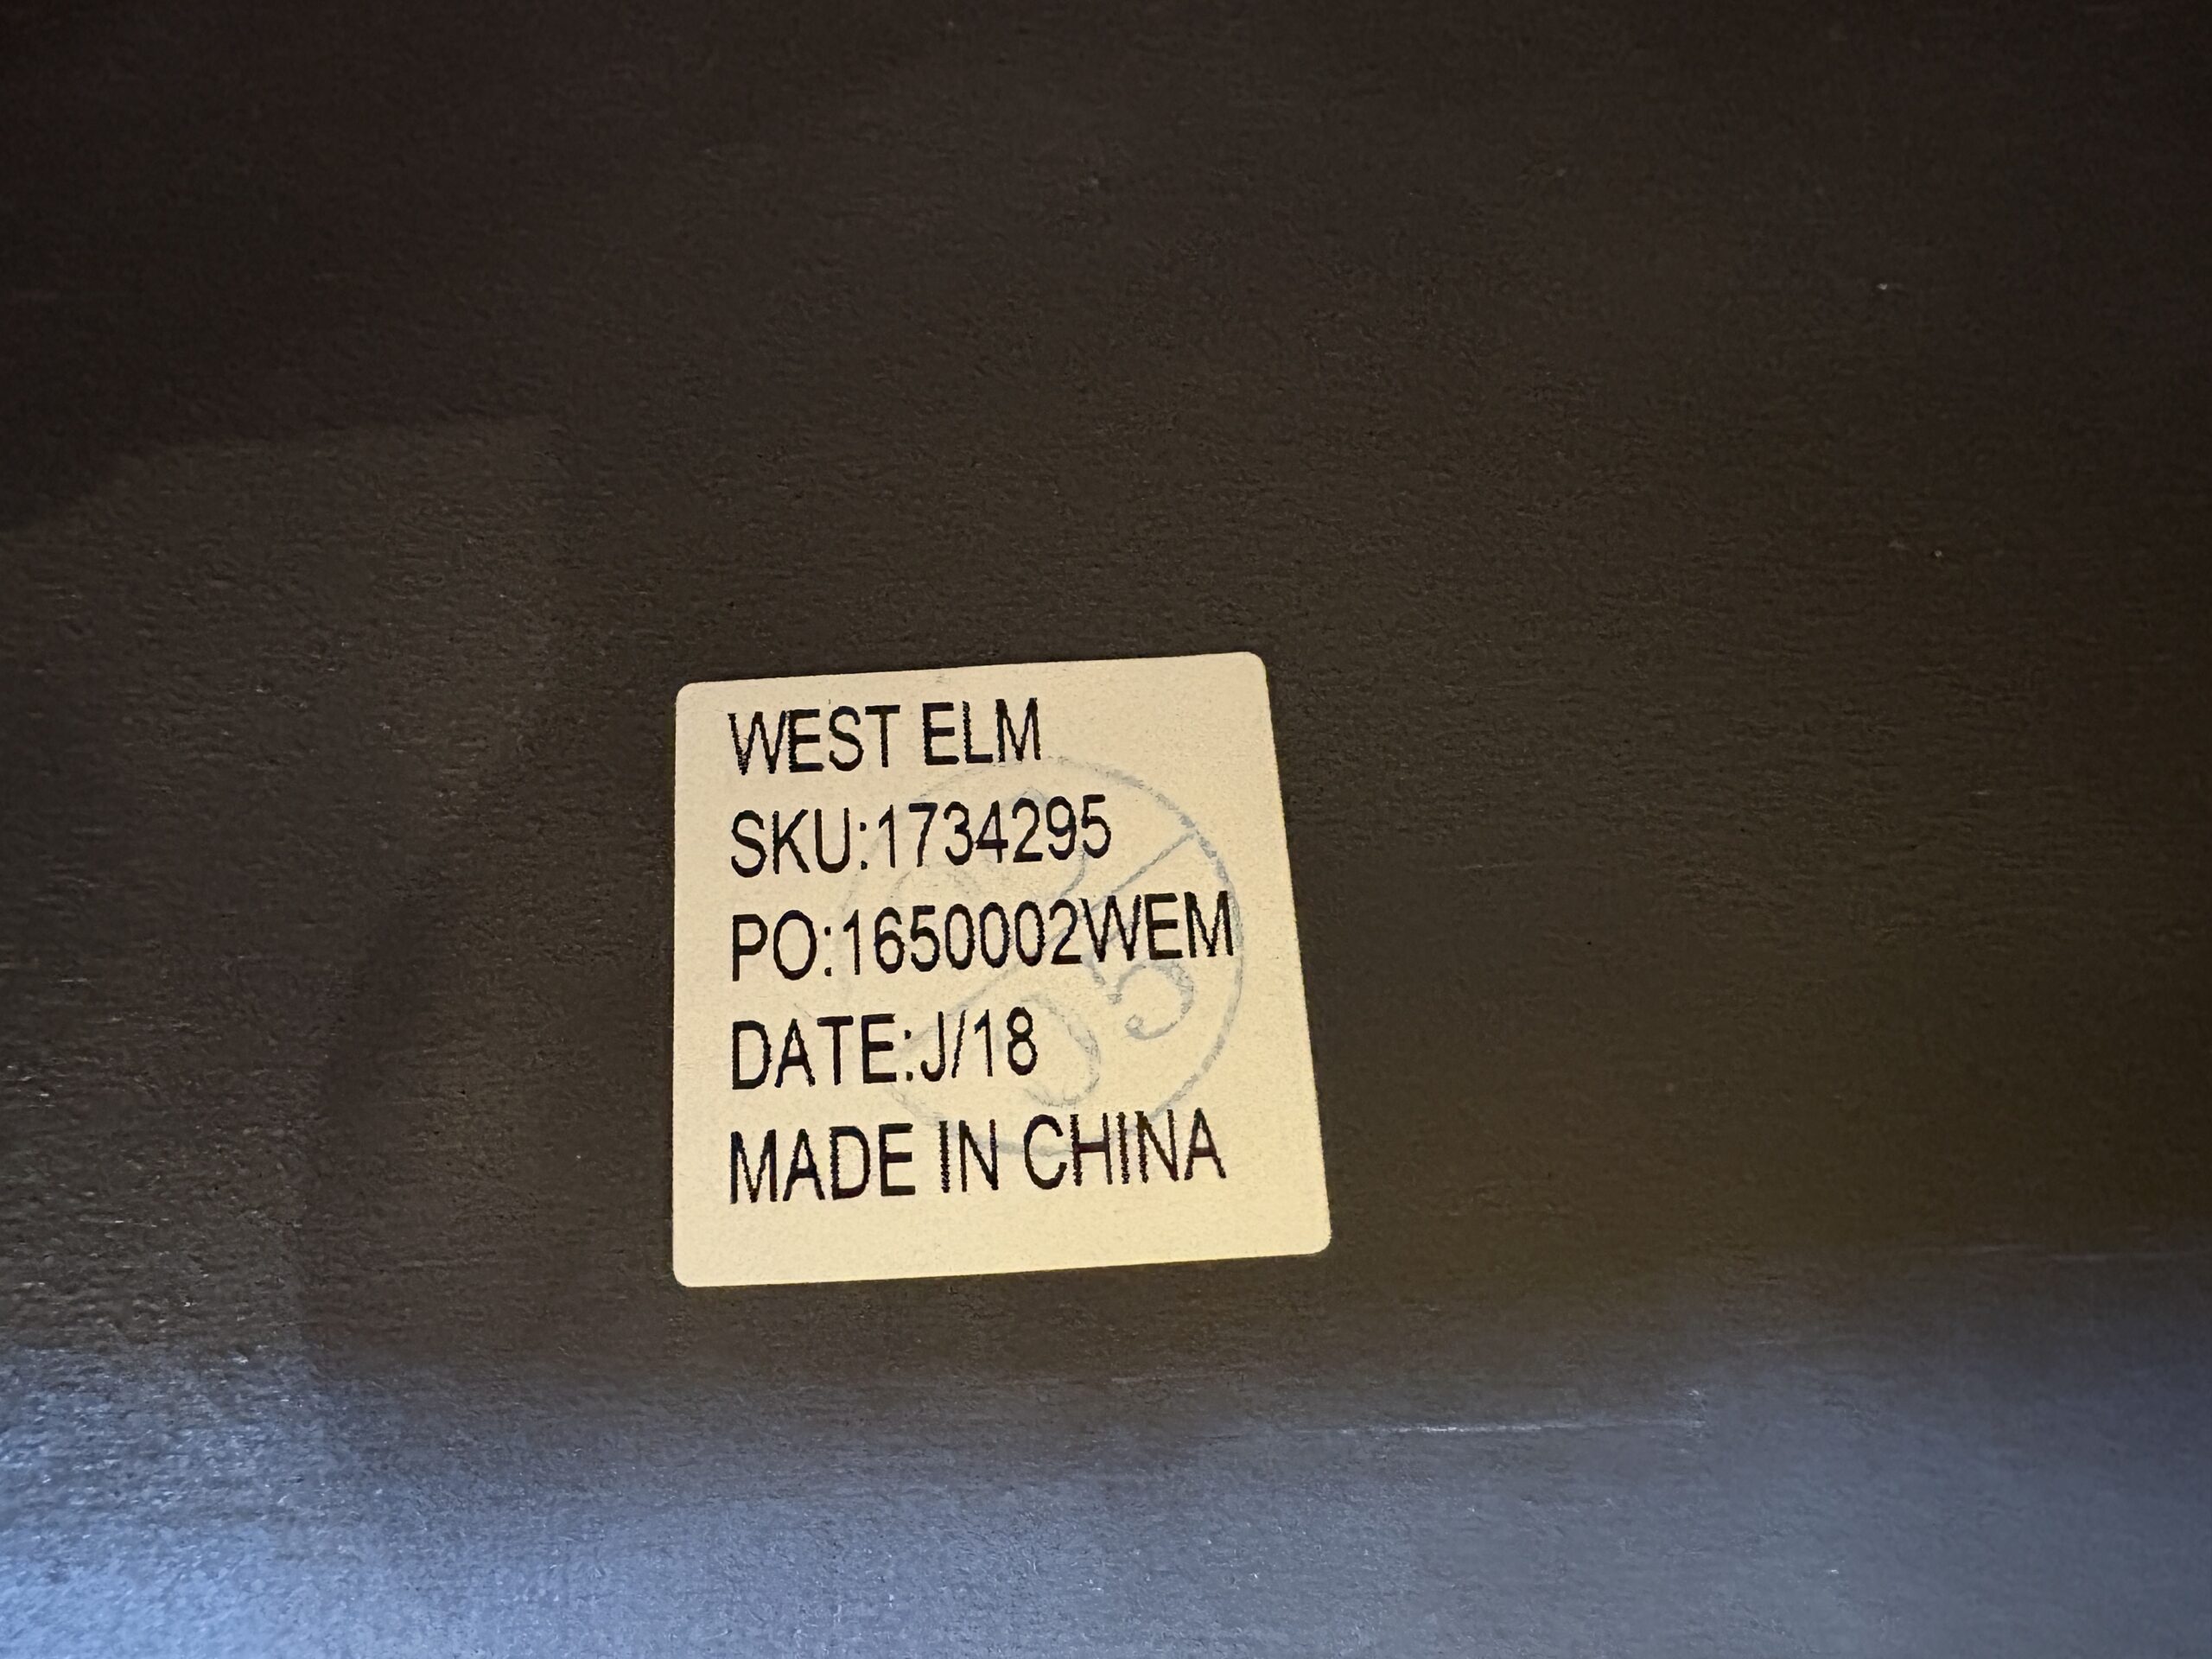 WEST ELM
SKU:1734295
PO:1650002WEM
DATE:J/18
MADE IN CHINA